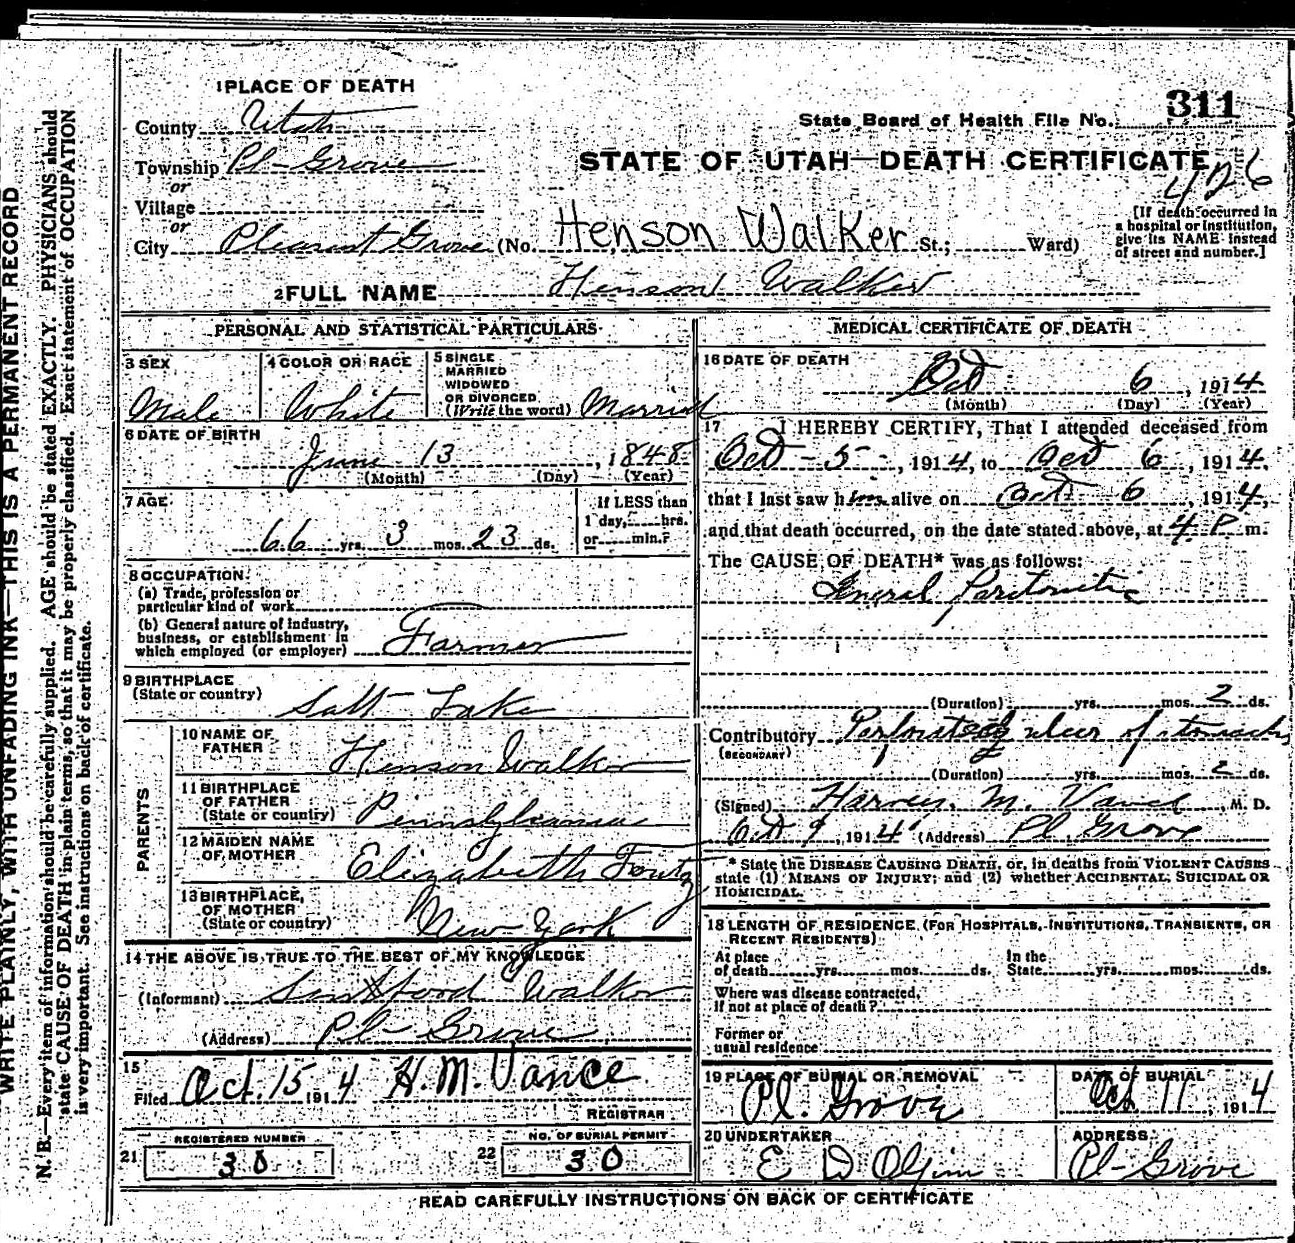 1 PLACE OF DEATH
County Utah
Township Pl-Grove
or
Village
or
City Pleasant Grove (No. Henson Walker St.; Ward)
State Board of Health File No. 311
STATE OF UTAH—DEATH CERTIFICATE
426
[If death occurred in
a hospital or institution,
give its NAME instead
of street and number.]
2 FULL NAME Henson Walker
PERSONAL AND STATISTICAL PARTICULARS
3 SEX
Male
4 COLOR OR RACE
White
5 SINGLE
MARRIED
WIDOWED
OR DIVORCED
(Write the word) Married
6 DATE OF BIRTH
June 13, 1848
(Month) (Day) (Year)
7 AGE
66 yrs. 3 mos. 23 ds.
If LESS than
1 day, hrs.
or min.?
8 OCCUPATION
(a) Trade, profession or
particular kind of work
(b) General nature of industry,
business, or establishment in
which employed (or employer) Farmer
9 BIRTHPLACE
(State or country) Salt Lake
PARENTS
10 NAME OF
FATHER Henson Walker
11 BIRTHPLACE
OF FATHER
(State or country) Pennsylvania
12 MAIDEN NAME
OF MOTHER Elizabeth Foutz
13 BIRTHPLACE
OF MOTHER
(State or country) New York
14 THE ABOVE IS TRUE TO THE BEST OF MY KNOWLEDGE
(Informant) Walker
(Address) Pl- Grove
15
Filed Oct. 15 1914 H. M. Vance
REGISTRAR
21 REGISTERED NUMBER
30
22 NO. OF BURIAL PERMIT
30
MEDICAL CERTIFICATE OF DEATH
16 DATE OF DEATH
Oct 6, 1914
(Month) (Day) (Year)
17 I HEREBY CERTIFY, That I attended deceased from
Oct - 5 -, 1914, to Oct 6, 1914,
that I last saw him alive on Oct 6, 1914,
and that death occurred, on the date stated above, at 4 P. m.
The CAUSE OF DEATH* was as follows:
General Peritonitis
(Duration) yrs. mos. 2 ds.
Contributory Perforated ulcer of stomach
(SECONDARY)
(Duration) yrs. mos. 2 ds.
(Signed) M. Vance, M. D.
Oct 9, 1914 (Address) Pl. Grove
* State the DISEASE CAUSING DEATH, or, in deaths from VIOLENT CAUSES
state (1) MEANS OF INJURY; and (2) whether ACCIDENTAL, SUICIDAL OR
HOMICIDAL.
18 LENGTH OF RESIDENCE (FOR HOSPITALS, INSTITUTIONS, TRANSIENTS, OR
RECENT RESIDENTS)
At place
of death yrs. mos. ds.
In the
State yrs. mos. ds.
Where was disease contracted,
If not at place of death?
Former or
usual residence
19 PLACE OF BURIAL OR REMOVAL
Pl. Grove
DATE OF BURIAL
Oct 11, 1914
20 UNDERTAKER
E D Olpin
ADDRESS
Pl- Grove
READ CAREFULLY INSTRUCTIONS ON BACK OF CERTIFICATE
WRITE PLAINLY, WITH UNFADING INK—THIS IS A PERMANENT RECORD
N. B.—Every item of information should be carefully supplied. AGE should be stated EXACTLY. PHYSICIANS should
state CAUSE OF DEATH in plain terms, so that it may be properly classified. Exact statement of OCCUPATION
is very important. See instructions on back of certificate.